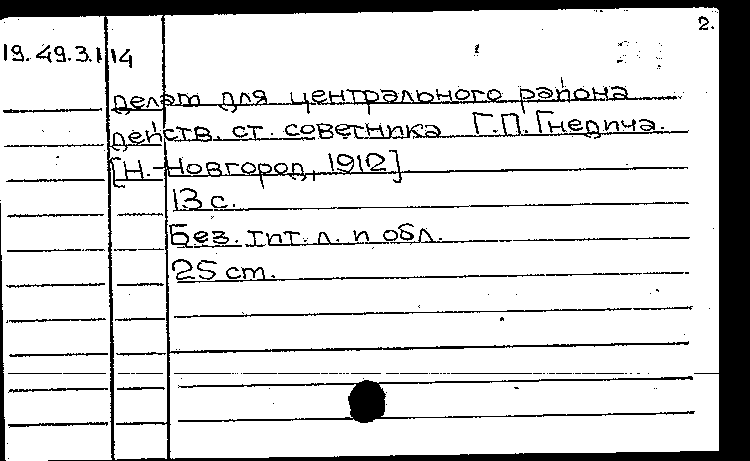 2.
19.49.3.114
делат для центрального района
действ. ст. советника Г.П. Гнедича.
[Н.-Новгород, 1912]
13 с.
Без. тит. л. и обл.
25 cm.